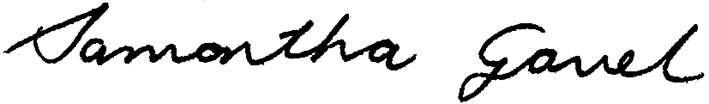 Samantha Gavel